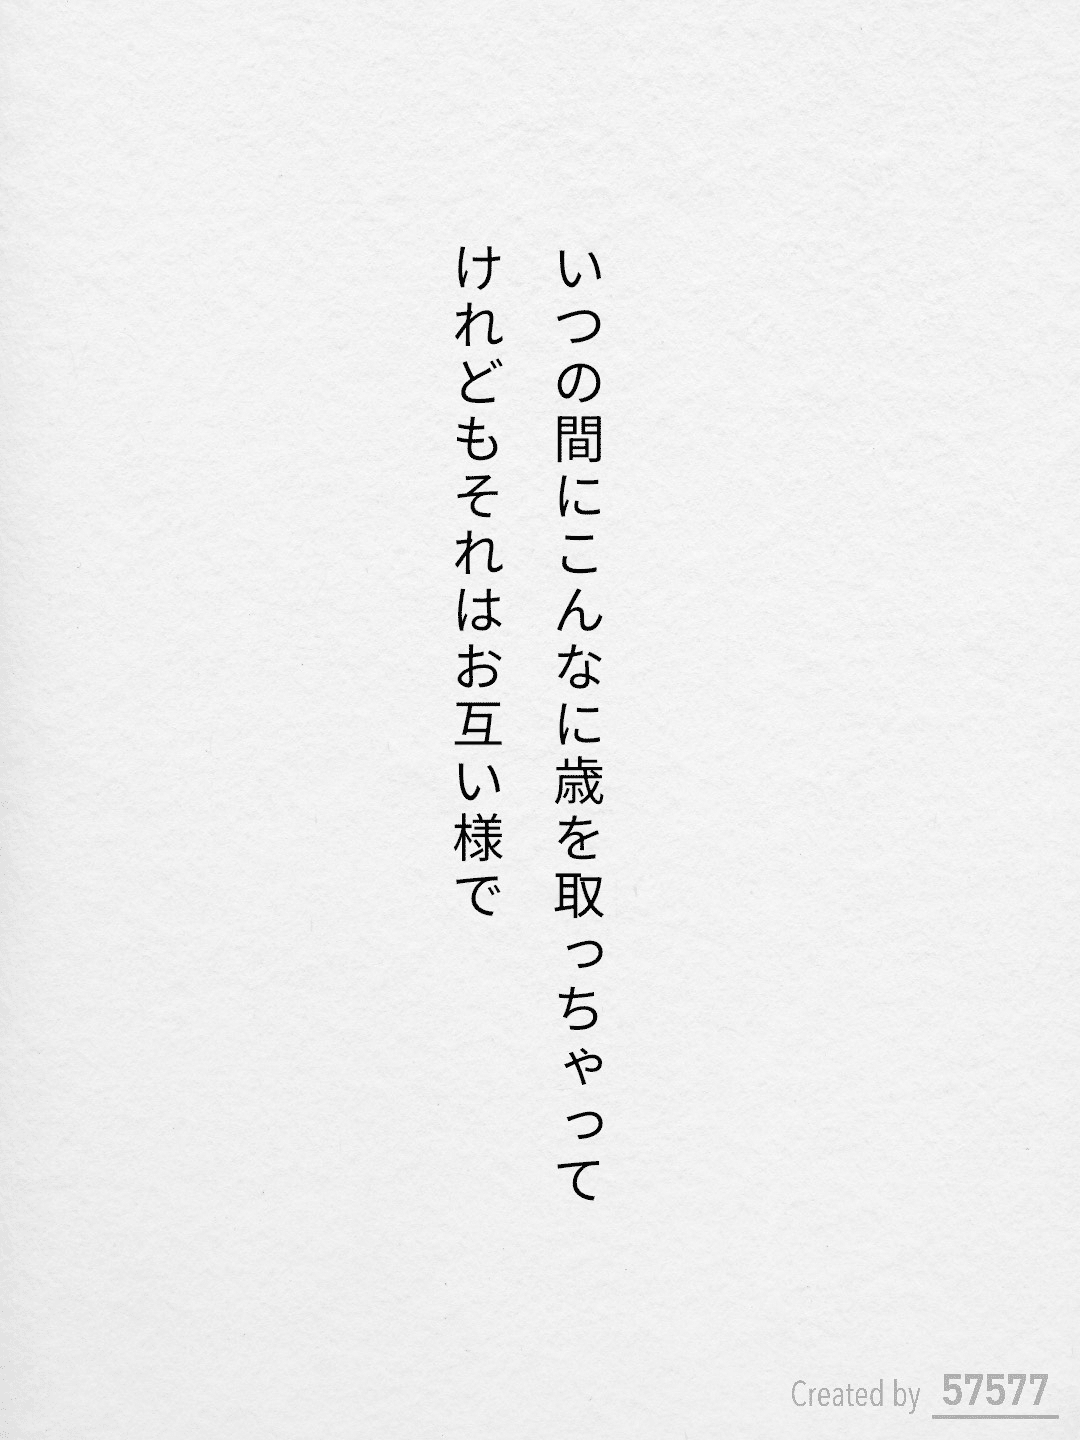 いつの間にこんなに歳を取っちゃって
けれどもそれはお互い様で
Created by 57577